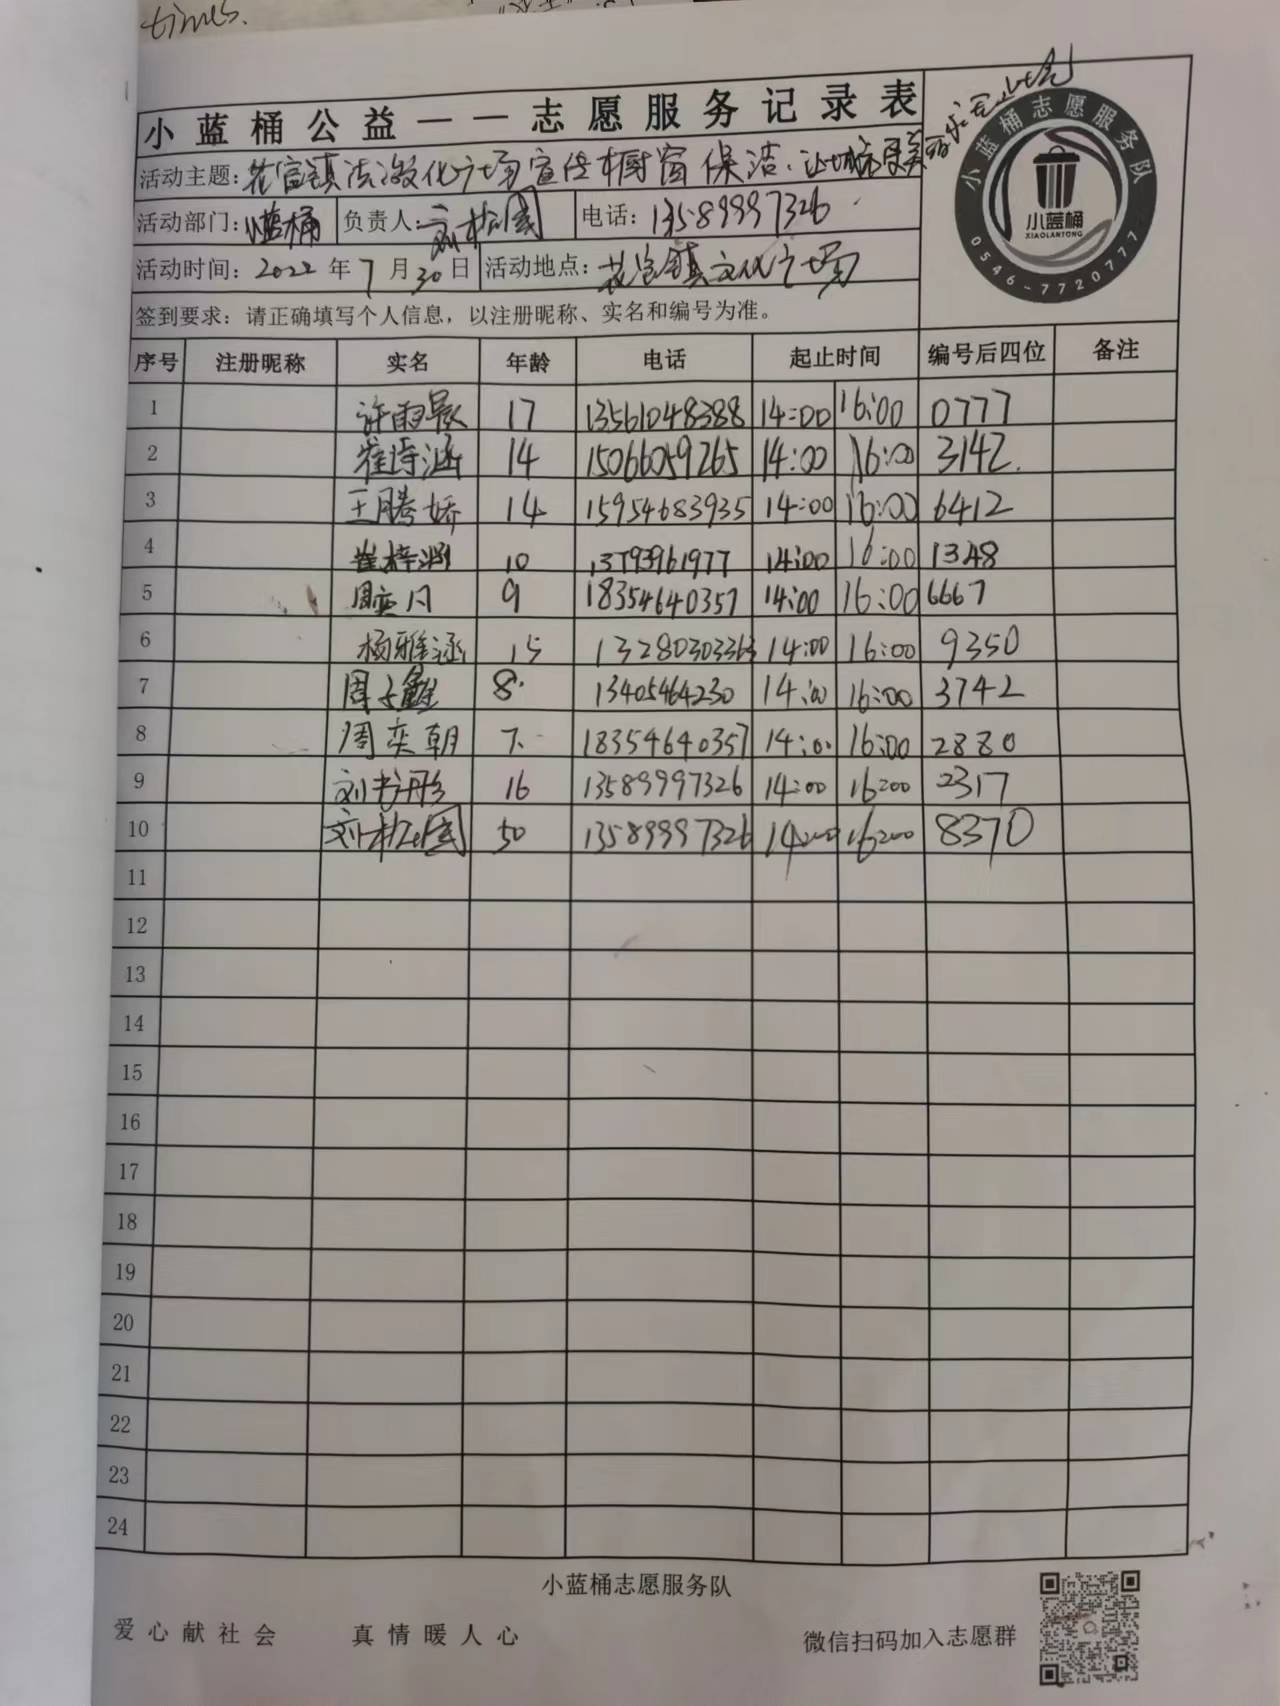 times.
小蓝桶公益——志愿服务记录表
活动主题：花官镇法治文化广场宣传橱窗保洁.让城市更美
活动部门：小蓝桶 负责人：刘松国 电话：13589997326
活动时间：2022年7月30日 活动地点：花官镇文化广场
签到要求：请正确填写个人信息，以注册昵称、实名和编号为准。
小蓝桶志愿服务队
小蓝桶
XIAOLANTONG
0546-7720777
序号 注册昵称 实名 年龄 电话 起止时间 编号后四位 备注
1 许雨 17 13561048388 14:00 16:00 0777
2 崔诗涵 14 15066059265 14:00 16:00 3142.
3 王腾娇 14 15954683935 14:00 16:00 6412
4 崔梓涵 10 13793961977 14:00 16:00 1348
5 周奕 9 18354640357 14:00 16:00 6667
6 杨雅涵 15 13280303363 14:00 16:00 9350
7 周子 8. 13405464230 14:00 16:00 3742
8 周奕朝 7. 18354640357 14:00 16:00 2880
9 刘书彤 16 13589997326 14:00 16:00 2317
10 刘松国 50 13589997326 14:00 16:00 8370
11
12
13
14
15
16
17
18
19
20
21
22
23
24
小蓝桶志愿服务队
爱心献社会 真情暖人心 微信扫码加入志愿群